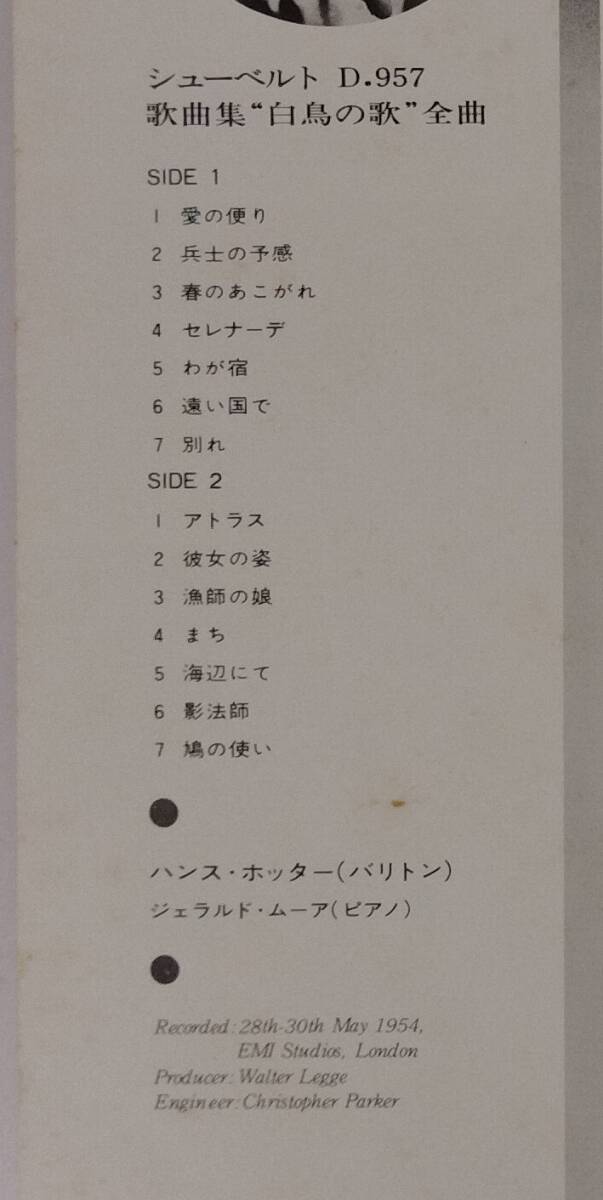 シューベルト D.957
歌曲集“白鳥の歌”全曲
SIDE 1
1 愛の便り
2 兵士の予感
3 春のあこがれ
4 セレナーデ
5 わが宿
6 遠い国で
7 別れ
SIDE 2
1 アトラス
2 彼女の姿
3 漁師の娘
4 まち
5 海辺にて
6 影法師
7 鳩の使い
ハンス・ホッター(バリトン)
ジェラルド・ムーア(ピアノ)
Recorded:28th-30th May 1954,
EMI Studios, London
Producer:Walter Legge
Engineer:Christopher Parker